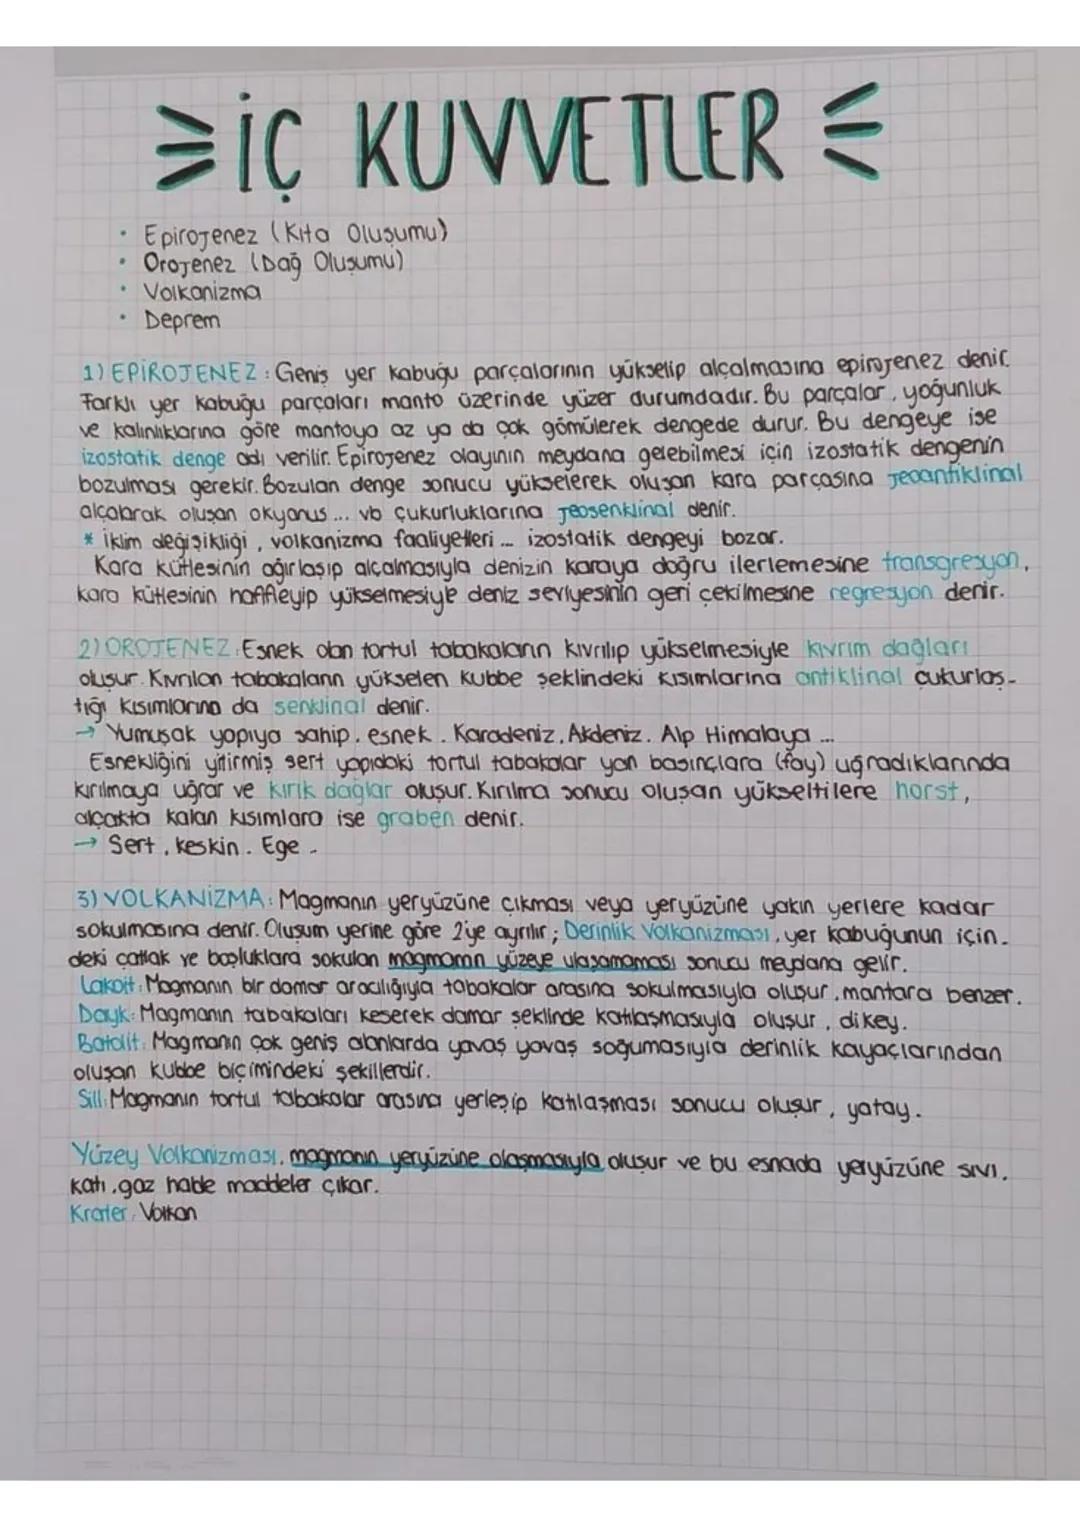 İÇ KUVVETLER
• Epirojenez (Kıta Oluşumu)
• Orojenez (Dağ Oluşumu)
• Volkanizma
• Deprem
1) EPİROJENEZ: Geniş yer kabuğu parçalarının yükselip alçalmasına epirojenez denir.
Farklı yer kabuğu parçaları manto üzerinde yüzer durumdadır. Bu parçalar, yoğunluk
ve kalınlıklarına göre mantoya az ya da çok gömülerek dengede durur. Bu dengeye ise
izostatik denge adı verilir. Epirojenez olayının meydana gelebilmesi için izostatik dengenin
bozulması gerekir. Bozulan denge sonucu yükselerek oluşan kara parçasına jeoantiklinal
alçalarak oluşan okyanus... vb çukurluklarına jeosenklinal denir.
* İklim değişikliği, volkanizma faaliyetleri... izostatik dengeyi bozar.
Kara kütlesinin ağırlaşıp alçalmasıyla denizin karaya doğru ilerlemesine transgresyon,
kara kütlesinin hafifleyip yükselmesiyle deniz seviyesinin geri çekilmesine regresyon denir.
2) OROJENEZ: Esnek olan tortul tabakaların kıvrılıp yükselmesiyle kıvrım dağları
oluşur. Kıvrılan tabakaların yükselen kubbe şeklindeki kısımlarına antiklinal çukurlaş-
tığı kısımlarına da senklinal denir.
→ Yumuşak yapıya sahip, esnek. Karadeniz, Akdeniz, Alp Himalaya ...
Esnekliğini yitirmiş sert yapıdaki tortul tabakalar yan basınçlara (fay) uğradıklarında
kırılmaya uğrar ve kırık dağlar oluşur. Kırılma sonucu oluşan yükseltilere horst,
alçakta kalan kısımlara ise graben denir.
→ Sert, keskin. Ege..
3) VOLKANİZMA: Magmanın yeryüzüne çıkması veya yeryüzüne yakın yerlere kadar
sokulmasına denir. Oluşum yerine göre 2'ye ayrılır; Derinlik Volkanizması, yer kabuğunun için-
deki çatlak ve boşluklara sokulan magmanın yüzeye ulaşamaması sonucu meydana gelir.
Lakolit: Magmanın bir damar aracılığıyla tabakalar arasına sokulmasıyla oluşur, mantara benzer.
Dayk: Magmanın tabakaları keserek damar şeklinde katılaşmasıyla oluşur, dikey.
Batolit: Magmanın çok geniş alanlarda yavaş yavaş soğumasıyla derinlik kayaçlarından
oluşan kubbe biçimindeki şekillerdir.
Sill: Magmanın tortul tabakalar arasına yerleşip katılaşması sonucu oluşur, yatay.
Yüzey Volkanizması, magmanın yeryüzüne olaşmasıyla oluşur ve bu esnada yeryüzüne sıvı,
katı, gaz halde maddeler çıkar.
Krater, Volkan